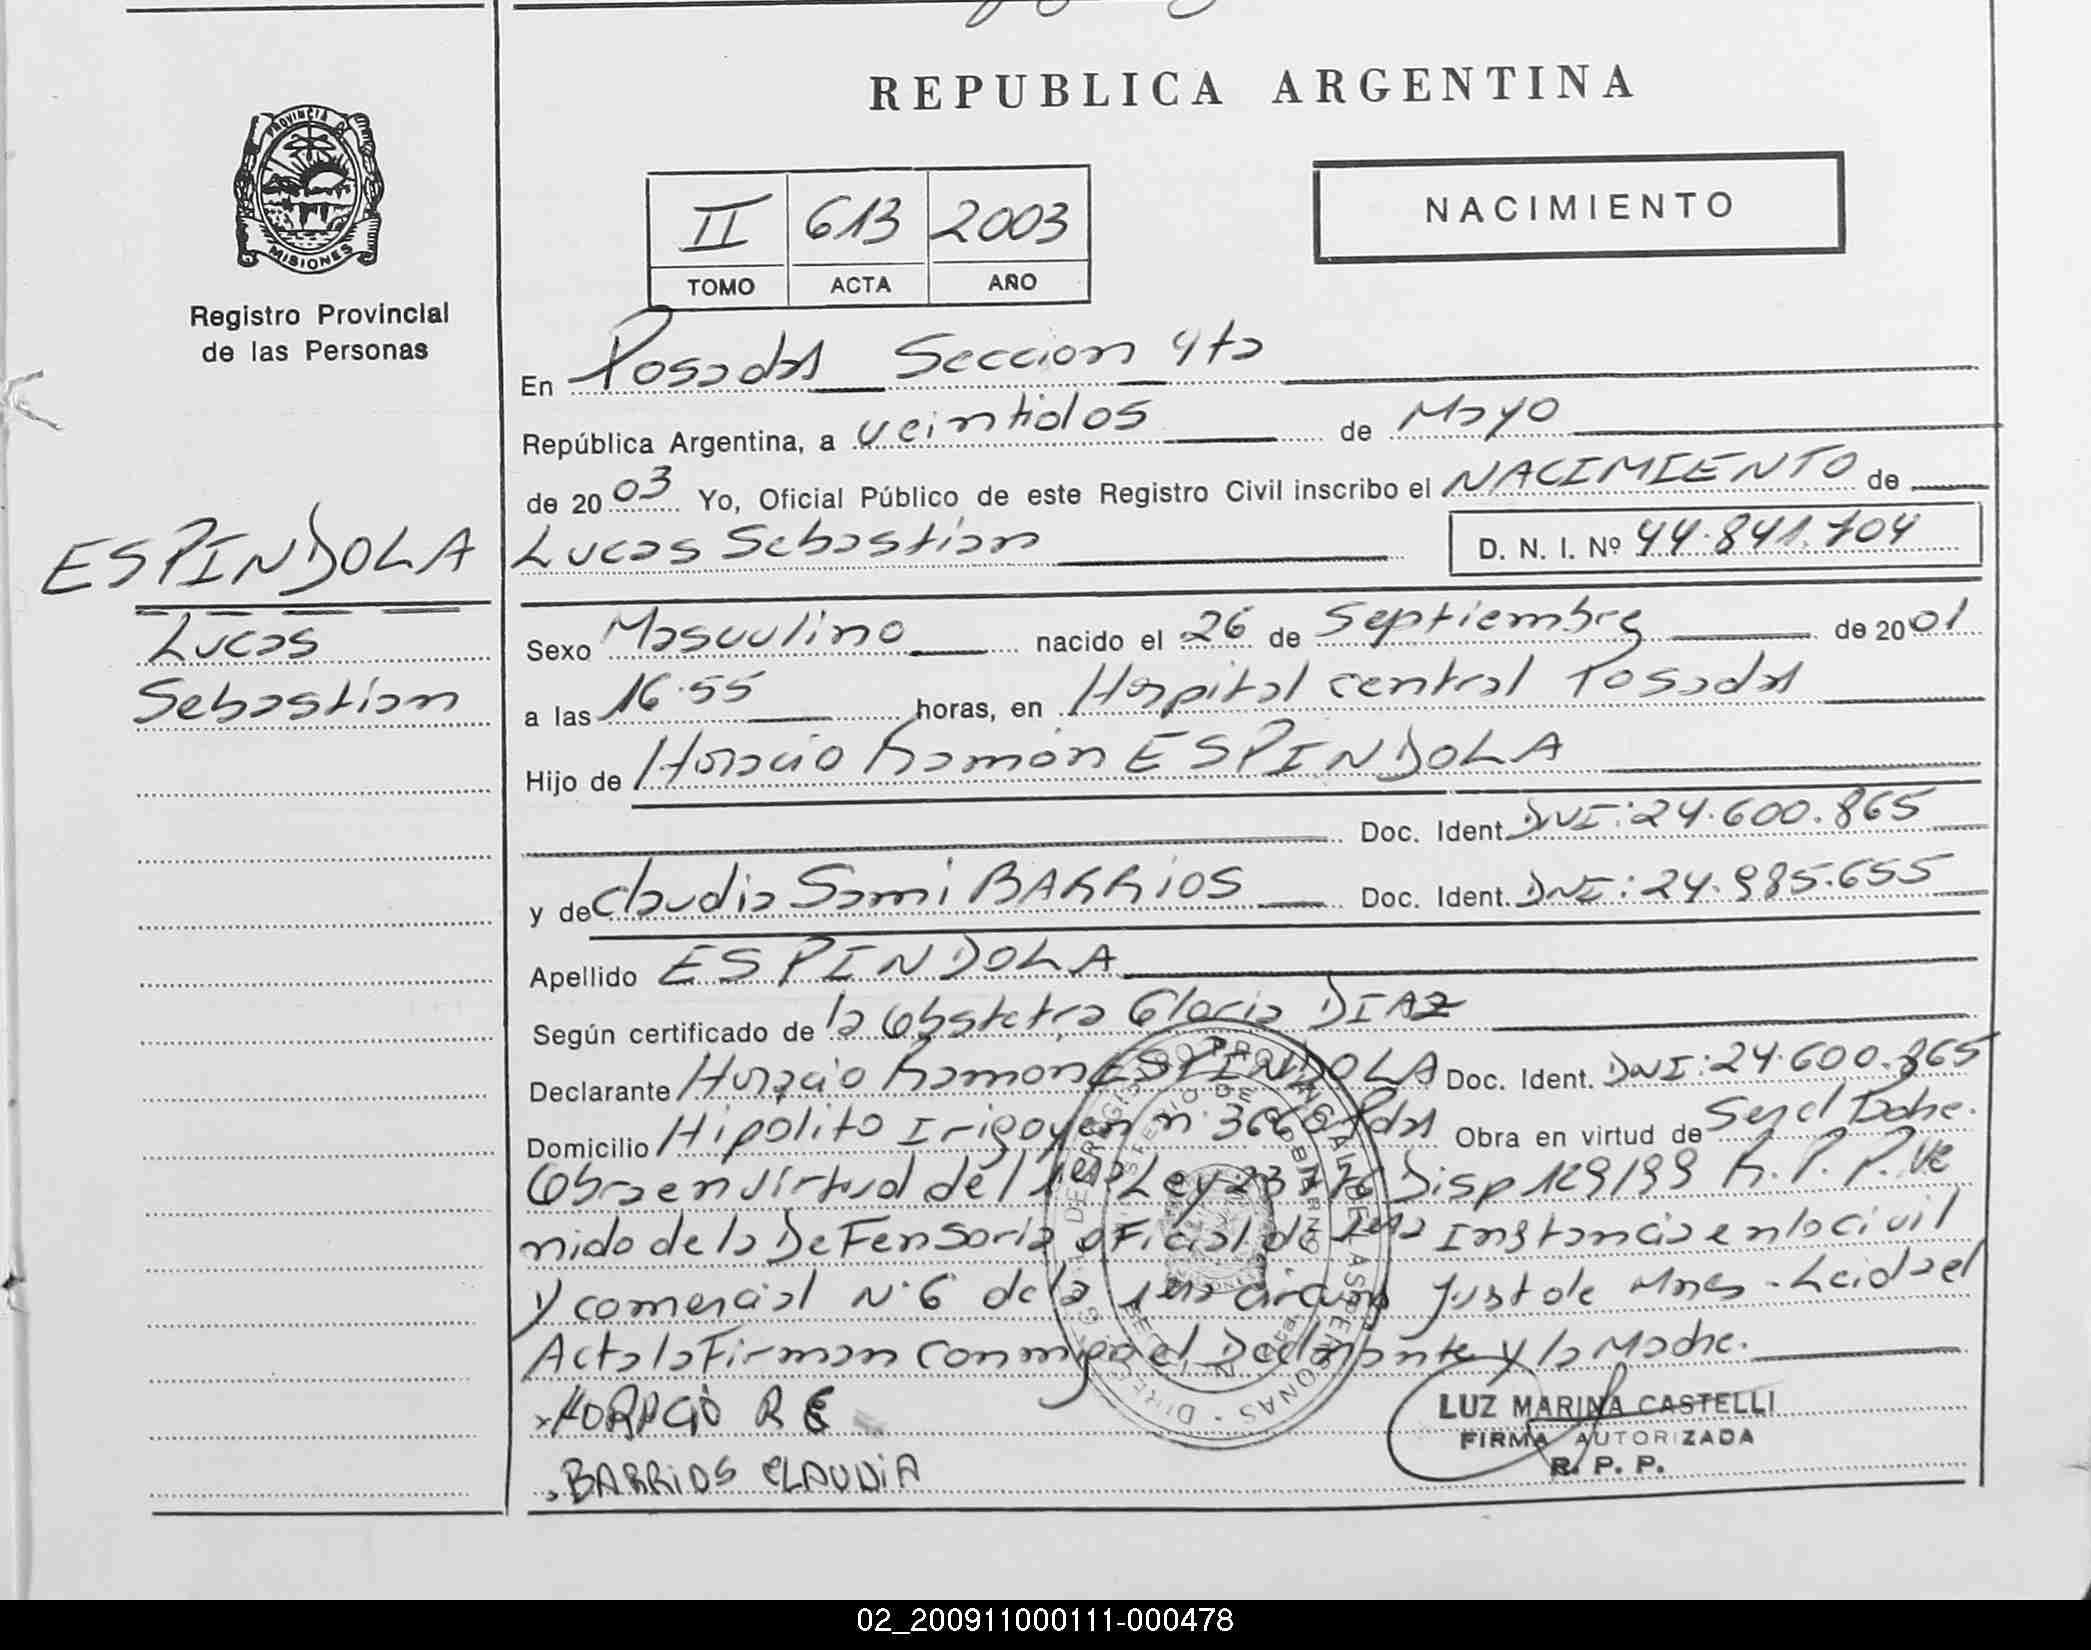 REPUBLICA ARGENTINA
PROVINCIA DE
MISIONES
Registro Provincial
de las Personas
II 613 2003
TOMO ACTA AÑO
NACIMIENTO
En Posadas Seccion 4ta
República Argentina, a veintidos de Mayo
de 20 03 Yo, Oficial Público de este Registro Civil inscribo el NACIMIENTO de
ESPINDOLA
Lucas
Sebastian
Lucas Sebastian D. N. I. Nº 44.841.704
Sexo Masculino nacido el 26 de Septiembre de 20 01
a las 16.55 horas, en Hospital central Posadas
Hijo de Horacio Ramón ESPINDOLA
Doc. Ident. DNI: 24.600.865
y de Claudia Sami BARRIOS Doc. Ident. DNI: 24.985.655
Apellido ESPINDOLA
Según certificado de la Obstetra Gloria DIAZ
Declarante Horacio Ramon ESPINDOLA Doc. Ident. DNI: 24.600.865
Domicilio Hipolito Irigoyen nº 3660 Pdas Obra en virtud de Ser el Padre.
Obra en virtud del Ley Disp 129/99 R. P. P. Ve
nido de la Defensoria oficial de 1era Instancia en lo civil
y comercial Nº 6 de la 1era circuns Just de Mnes - Leida el
Acta la Firman conmigo el Declarante y la Madre.
HORACIO R E
BARRIOS CLAUDIA
LUZ MARINA CASTELLI
FIRMA AUTORIZADA
R. P. P.
02_200911000111-000478